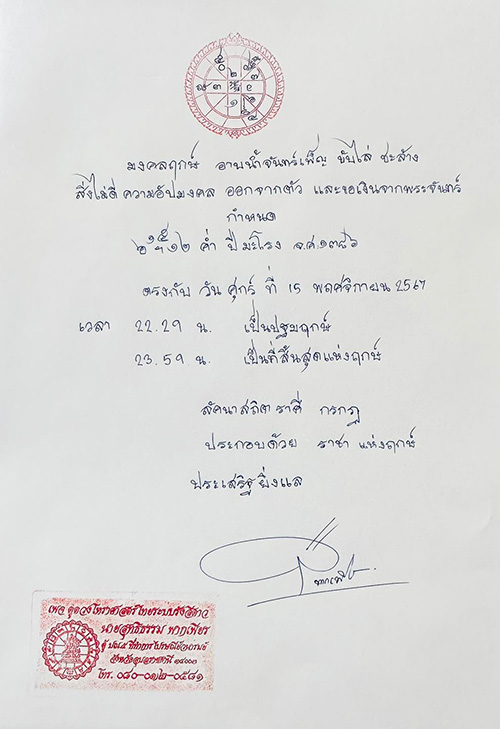 มงคลฤกษ์ อาบน้ำจันทร์เพ็ญ ขับไล่ ชะล้าง
สิ่งไม่ดี ความอัปมงคล ออกจากตัว และขอเงินจากพระจันทร์
กำหนด
๑๕ ๑๒ ค่ำ ปี มะโรง จ.ศ.๑๓๘๖
ตรงกับ วัน ศุกร์ ที่ 15 พฤศจิกายน 2567
เวลา 22.29 น. เป็นปฐมฤกษ์
23.59 น. เป็นที่สิ้นสุดแห่งฤกษ์
ลัคนาสถิต ราศี กรกฎ
ประกอบด้วย ราชา แห่งฤกษ์
ประเสริฐ ยิ่งแล
นายสุทธิธรรม พากเพียร
โทร. ๐๘๐-๐๑๒-๐๕๘๑